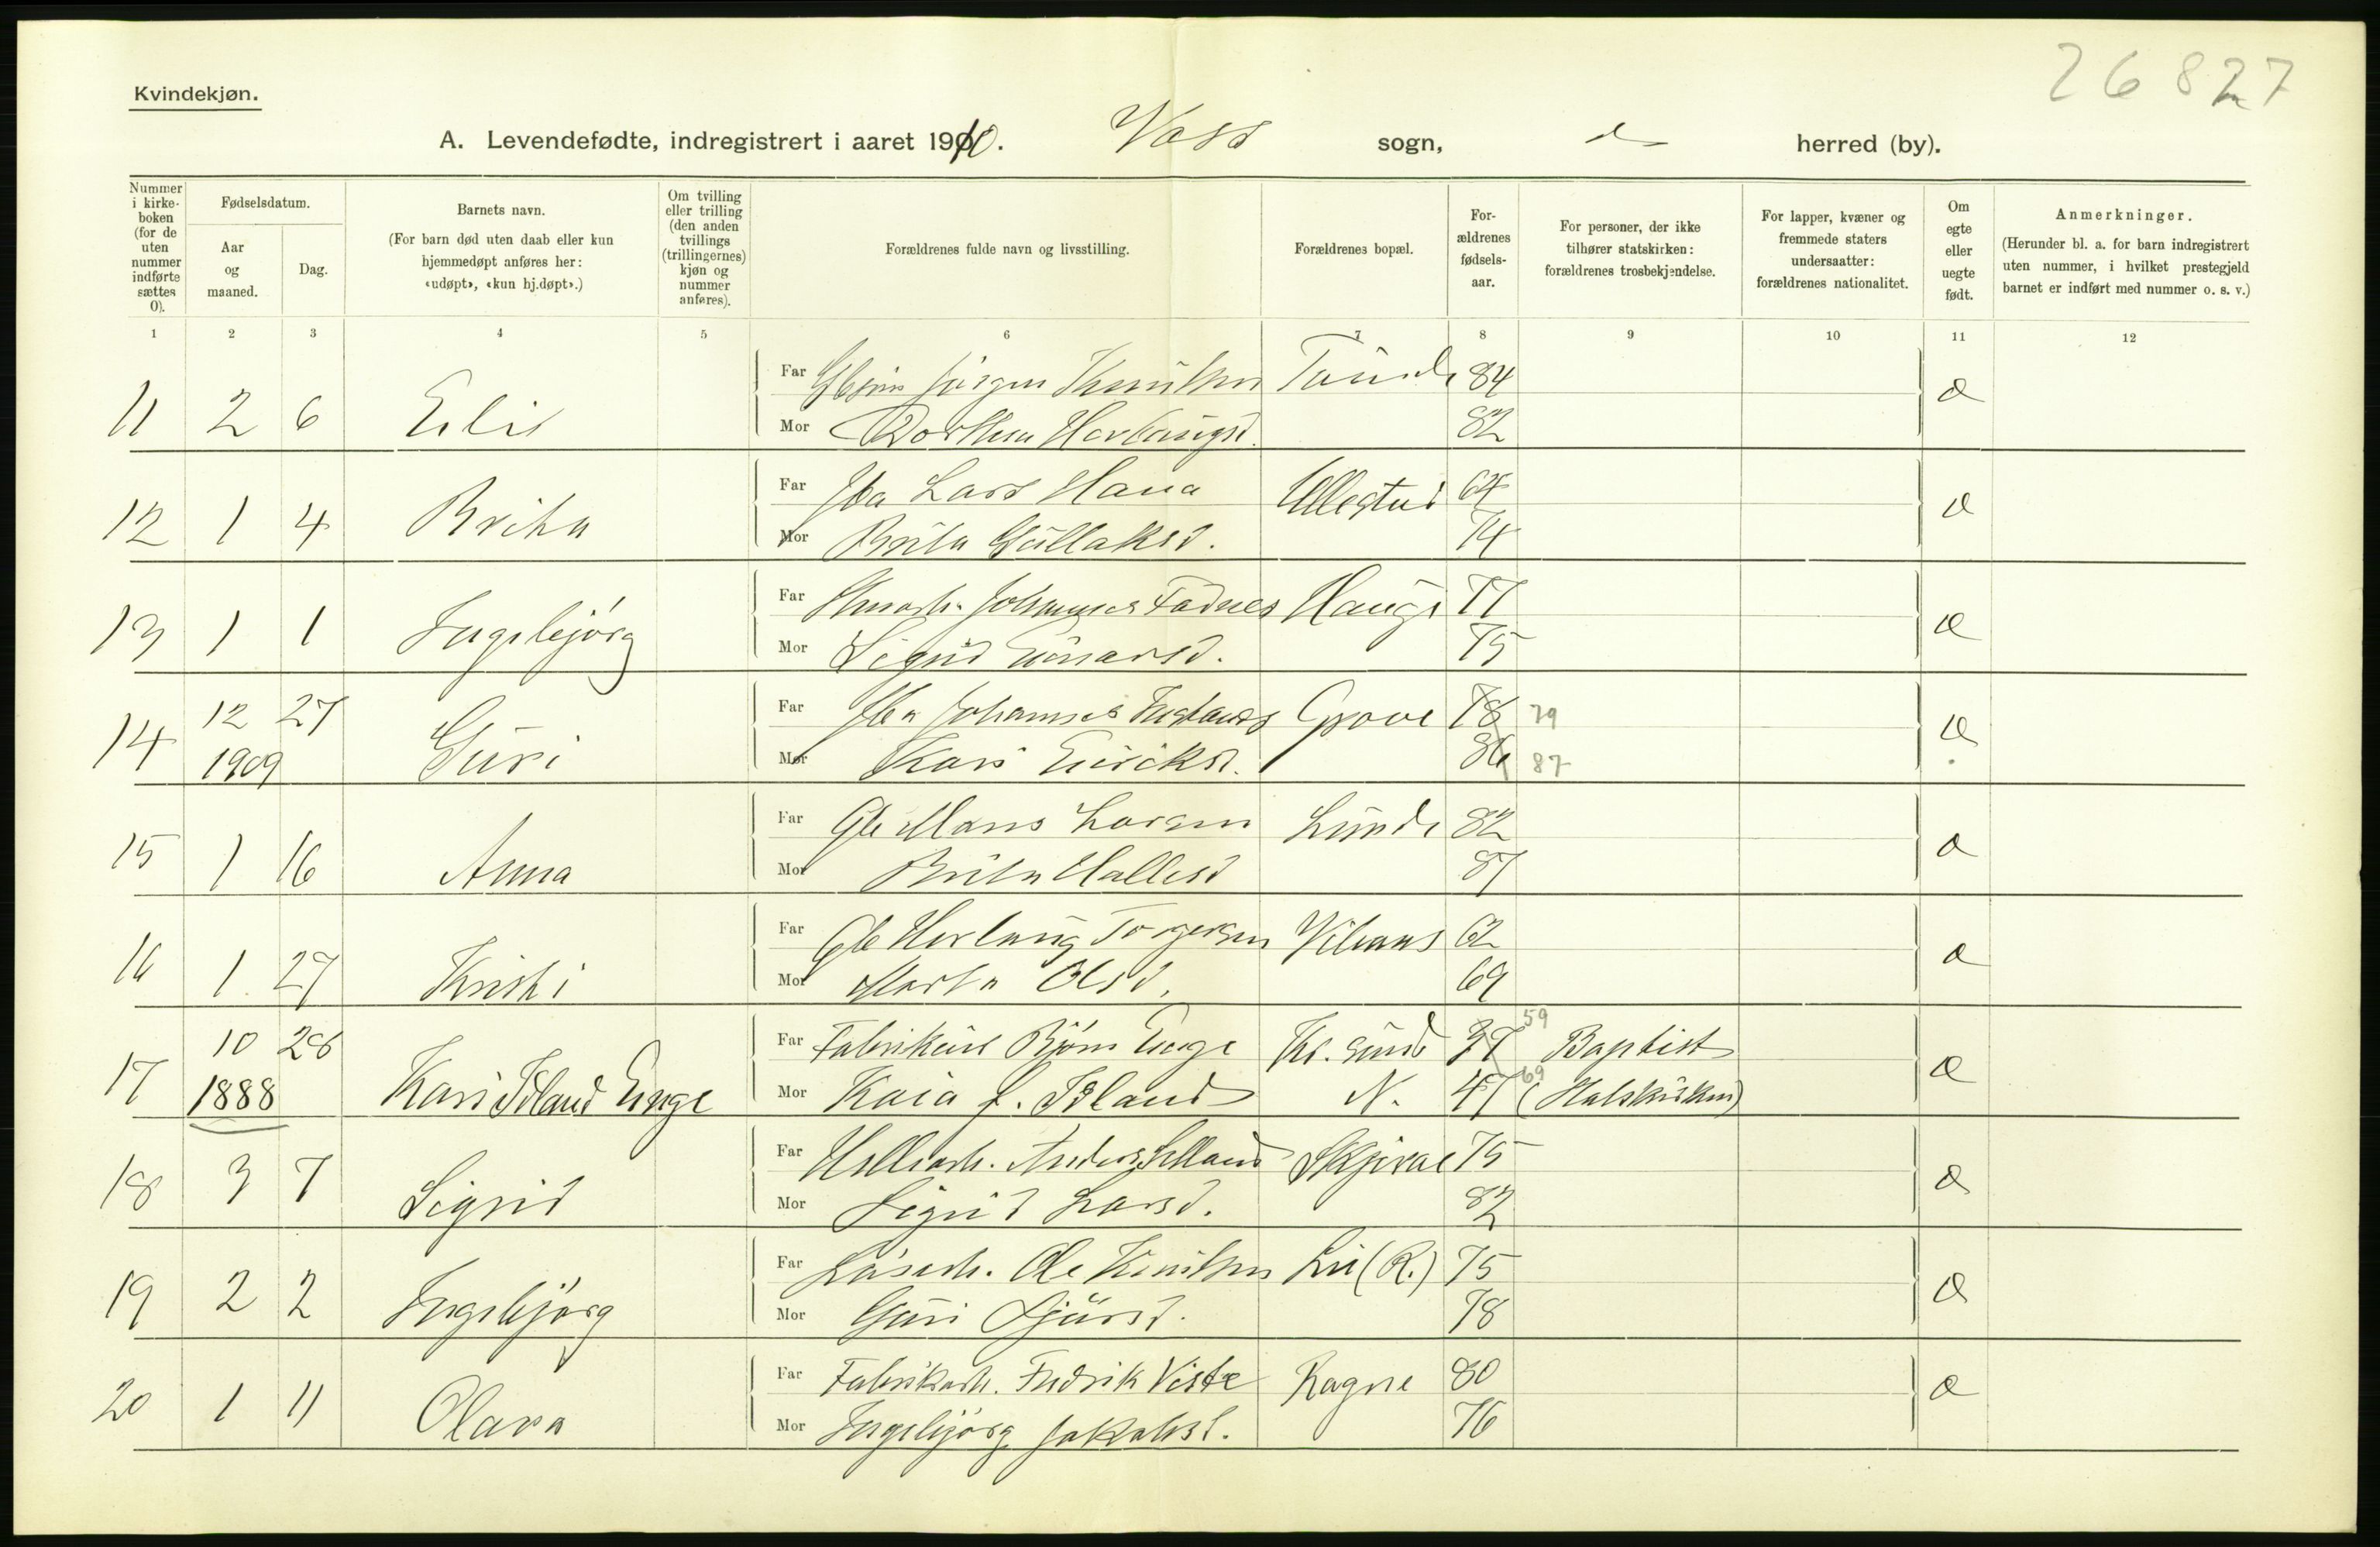 26827
Kvindekjøn.
A. Levendefødte, indregistrert i aaret 1910. Voss sogn, herred (by).
Nummer i kirke-boken (for de uten nummer indførte sættes 0).
Fødselsdatum.
Aar og maaned.
Dag.
Barnets navn.
(For barn død uten daab eller kun hjemmedøpt anføres her: «udøpt», «kun hj.døpt».)
Om tvilling eller trilling (den anden tvillings (trillingernes) kjøn og nummer anføres).
Forældrenes fulde navn og livsstilling.
Forældrenes bopæl.
For-ældrenes fødsels-aar.
For personer, der ikke tilhører statskirken: forældrenes trosbekjendelse.
For lapper, kvæner og fremmede staters undersaatter: forældrenes nationalitet.
Om egte eller uegte født.
Anmerkninger.
(Herunder bl. a. for barn indregistrert uten nummer, i hvilket prestegjeld barnet er indført med nummer o. s. v.)
1 2 3 4 5 6 7 8 9 10 11 12
Far Jørgen Knutsen 84
11 2 6 Eli Mor Dorthea Herlaugsd. 82 e
Far Lars Hana Ullestad 64
12 1 4 Brita Mor Brita Gullaksd. 74 e
Far Johannes Fadnes Hauge 77
13 1 1 Ingebjørg Mor Sigrid Einarsd. 75 e
12 27 Far Johannes Grove 78 79
14 1909 Guri Mor Kari Eiriksd. 86 87 e
Far Gb Mons Larsen Lunde 82
15 1 16 Anna Mor Brita Hallesd 87 e
Far Gb Herlaug Torgersen 62
16 1 27 Kristi Mor Marta Olsd. 69 e
10 28 Far Bjørn Enge Kr. sund 37 59 Baptist
17 1888 Kari Island Enge Mor Kaia f. Island N. 47 69 e
Far Anders Skjerve 75
18 3 7 Sigrid Mor Sigrid Larsd. 82 e
Far Ole Knutsen Lii (R.) 75
19 2 2 Ingebjørg Mor Guri Sjursd. 78 e
Far Fabrikarb. Fredrik Viste Rogne 80
20 1 11 Olava Mor Ingebjørg Jakobsd. 76 e